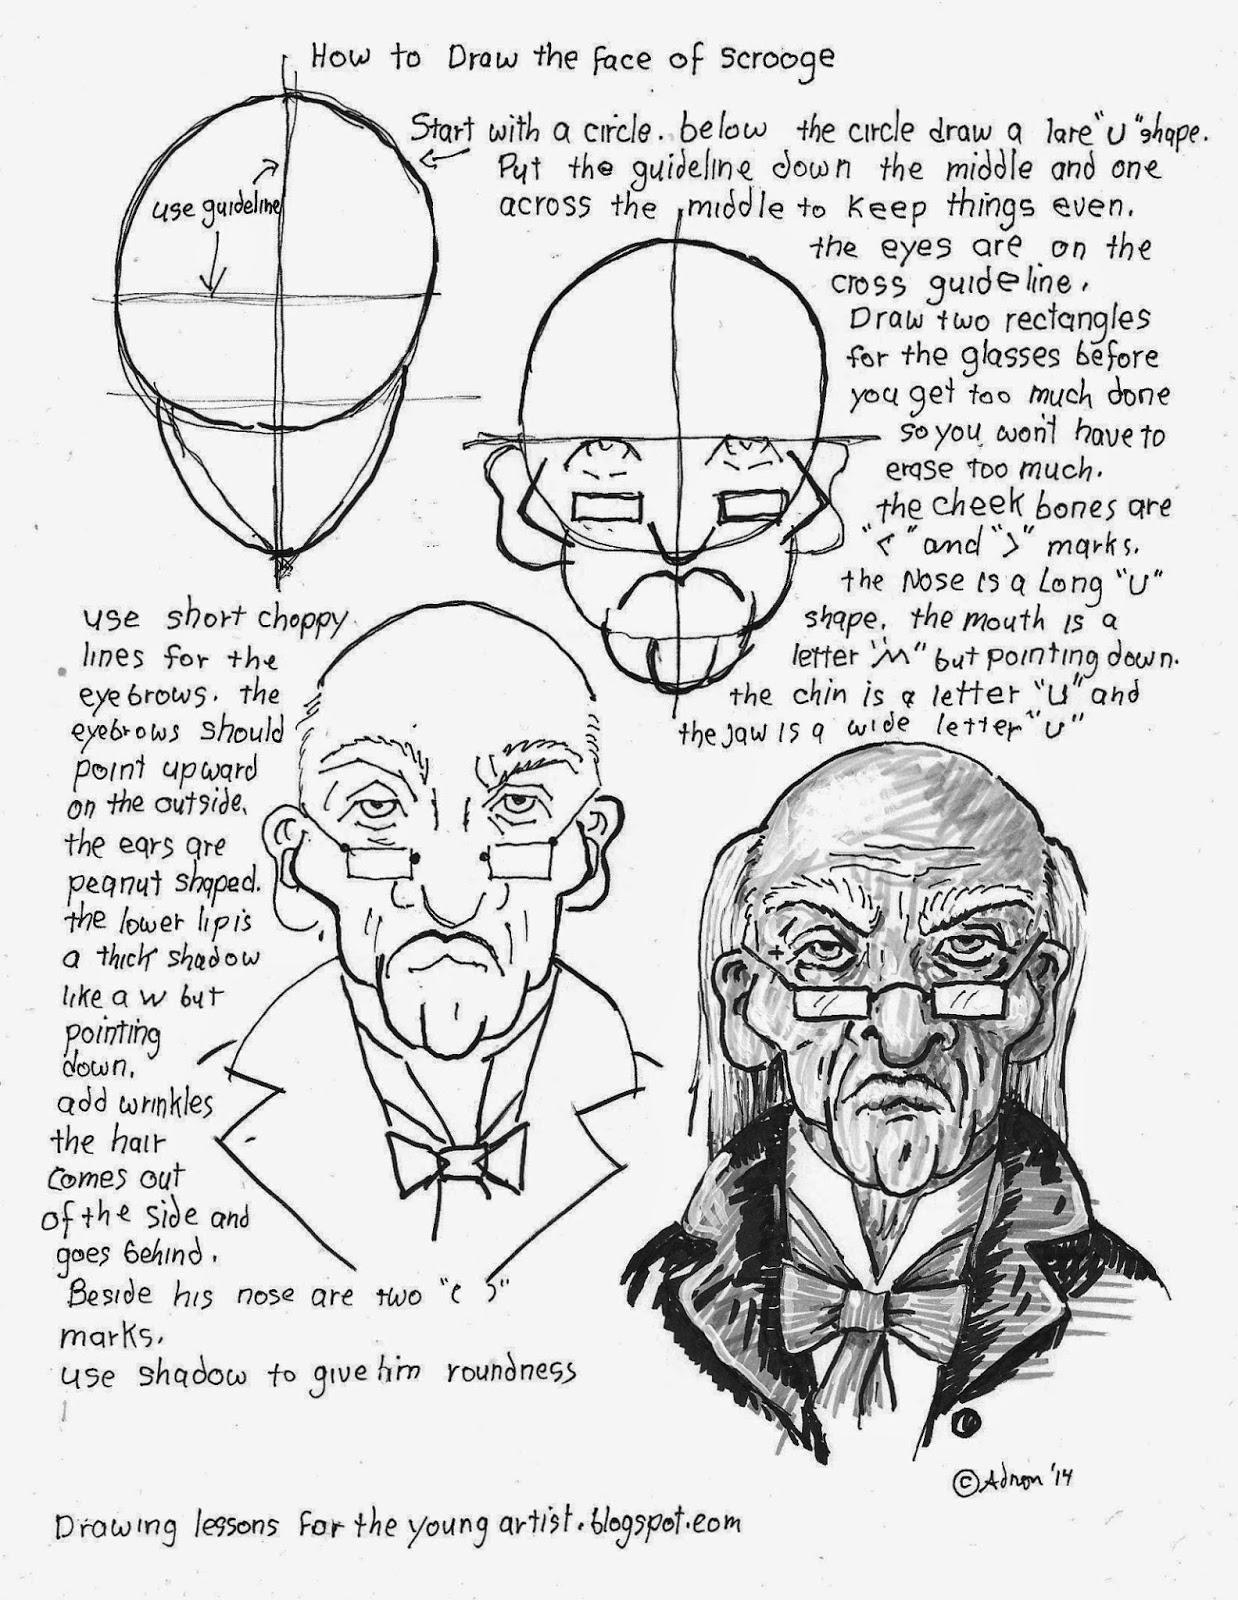 How to Draw the face of Scrooge
Start with a circle. below the circle draw a lare "U" shape.
Put the guideline down the middle and one
across the middle to keep things even.
use guideline
the eyes are on the
cross guideline.
Draw two rectangles
for the glasses before
you get too much done
so you won't have to
erase too much.
the cheek bones are
"<" and ">" marks.
the Nose is a Long "U"
shape. the mouth is a
letter "M" but pointing down.
the chin is a letter "U" and
the jaw is a wide letter "U"
use short choppy
lines for the
eyebrows. the
eyebrows should
point upward
on the outside.
the ears are
peanut shaped.
the lower lip is
a thick shadow
like a w but
pointing
down.
add wrinkles
the hair
comes out
of the side and
goes behind.
Beside his nose are two "( )"
marks.
use shadow to give him roundness
© Adron '14
Drawing lessons for the young artist.blogspot.com